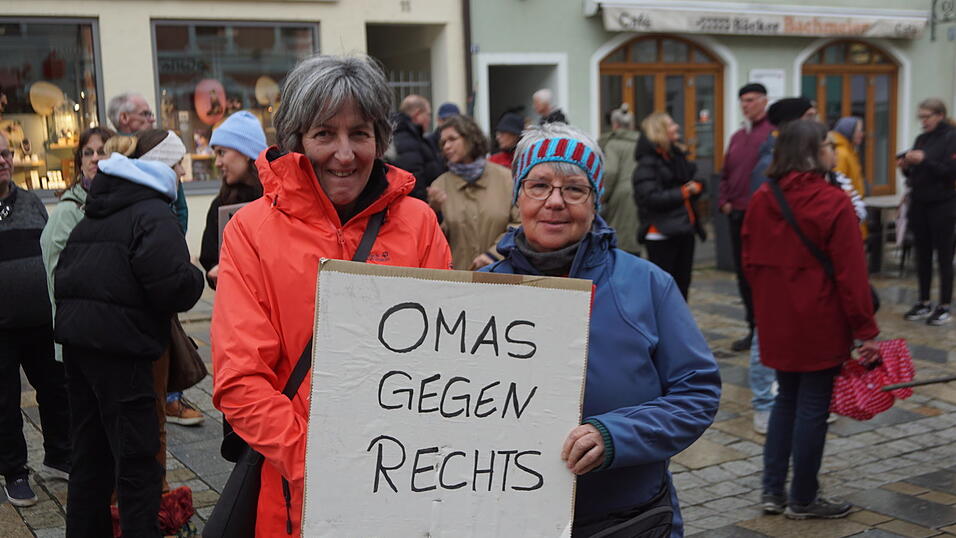 11
Café
Bäcker Bachmeier
Café
OMAS
GEGEN
RECHTS